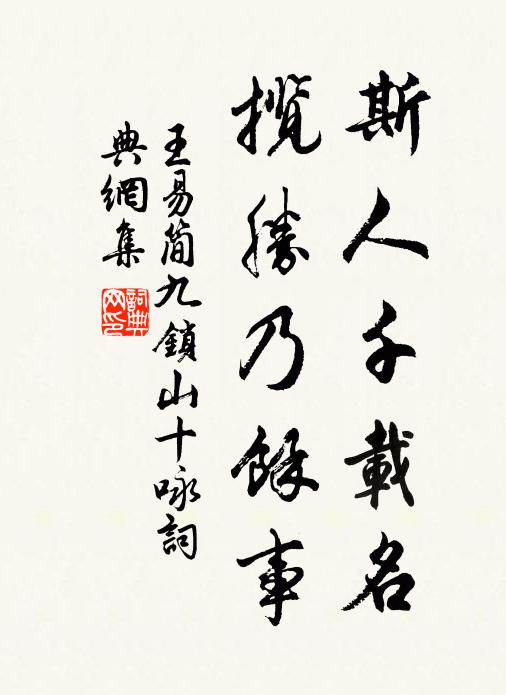 斯人千載名
攬勝乃餘事
王易简九鎖山十咏詞
典網集
詞典网印